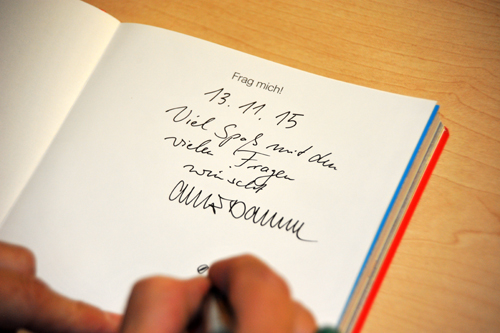 Frag mich!
13. 11. 15
Viel Spaß mit den
vielen Fragen
wünscht